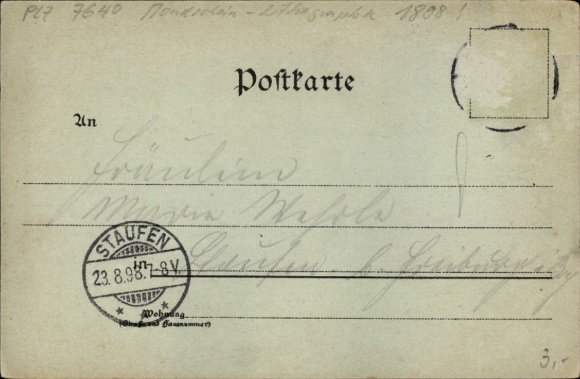 PLZ 7640 Mondschein-Lithographie 1898!
Postkarte
An
Fräulein
Marie Wehrle
in Staufen b. Freiburg
STAUFEN
23.8.98. 7-8V.
Wohnung
(Straße und Hausnummer)
3,-